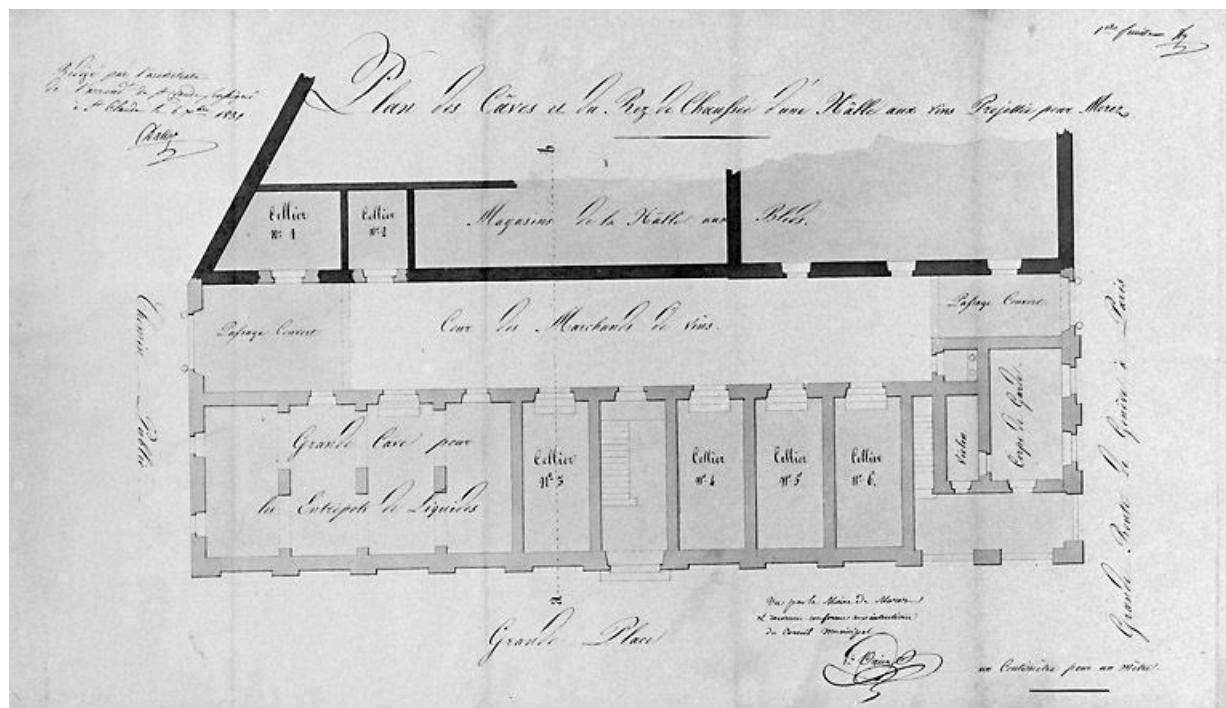 1ère feuille
Rédigé par l'architecte
de l'arrond. de St Claude soussigné
à St Claude le 6 xbre 183
Plan des Caves et du Rez de Chaussée d'une Halle aux vins Projettée pour Morez
b
Cellier
N° 1
Cellier
N° 2
Magasins de la Hâlle aux Bleds.
Passage Couvert
Cour des Marchands de vins.
Passage Couvert
Chemin Public
Grande Route de Genève à Paris
Grande Cave pour
les Entrepots de Liquides
Cellier
N° 3
Cellier
N° 4
Cellier
N° 5
Cellier
N° 6
Violon
Corps de Garde
a
Grande Place
Vu par le Maire de Morez
et reconnu conforme aux intentions
du Conseil Municipal
un Centimètre pour un mètre.